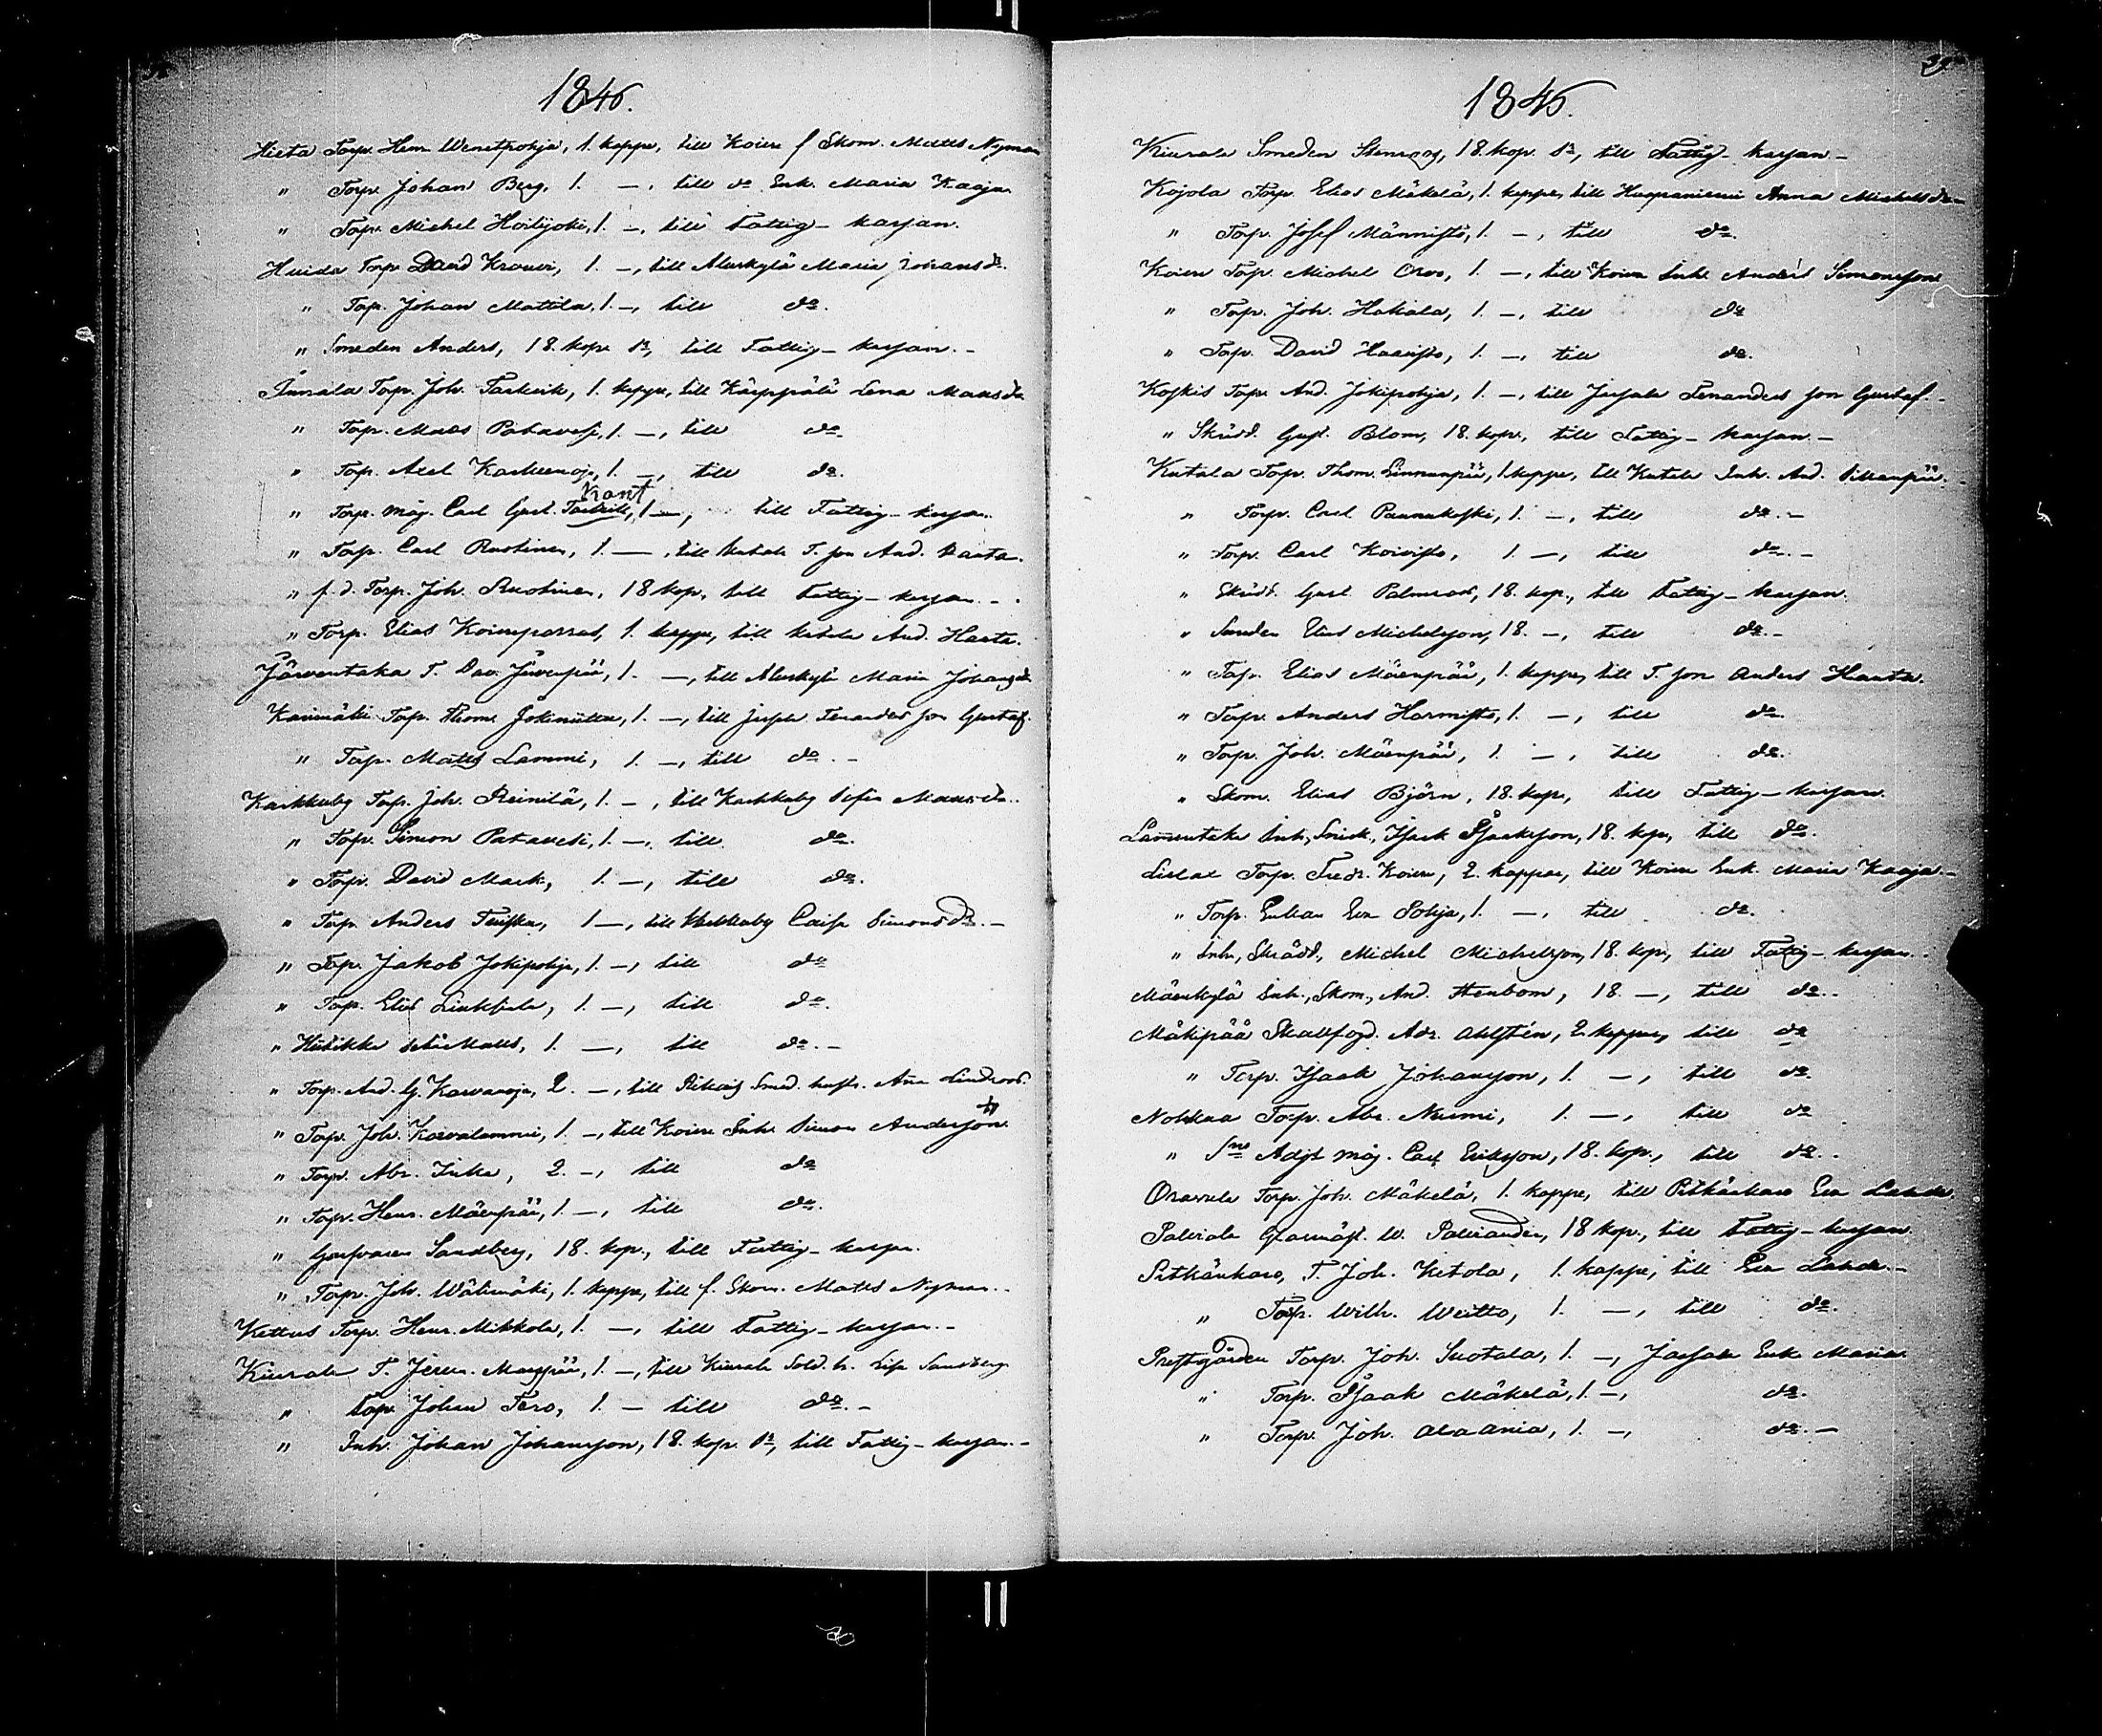 1846.
Hieta Torp. Henr. Wenetpohja, 1. kappe, till Koivu f Skom. Matts Nyman
" Torp. Johan Berg, 1. —, till do Enk. Maria Kaaja
" Torp. Michel Hoilijoki, 1. —, till Fattig-kassan.
Huida Torp. David Krouvi, 1. —, till Alaskylä Maria Johansdr.
" Torp. Johan Mattila, 1. —, till do.
" Smeden Anders, 18. kop. Sr, till Fattig-kassan. —
Torp. Joh. 1. kappe, till Käyppälä Lena Matsdr
" Torp. Matts Patavesi, 1. —, till do.
" Torp. Axel 1. —, till do.
Kant
" Torp. måg. Carl Gust. 1 —, till Fattig-kassan.
" Torp. Carl Ruotinen, 1. —, till Kutala T. son And. Haata.
" f. d. Torp. Joh. Ruotinen, 18 kop, till Fattig-kassan. —
" Torp. Elias 1. kappe, till Kutala And. Haata.
Järventaka T. Dav. Järvenpää, 1. —, till Alaskylä Maria Johansdr
Torp. Thom. 1. —, till son Gustaf.
" Torp. Matts Lammi, 1. —, till do. —
Karkkuby Torp. Joh. Reinilä, 1. —, till Karkkuby Sofia Matsdr.
" Torp. Simon Patavesi, 1. —, till do.
" Torp. David Mark, 1. —, till do.
" Torp. Anders 1 —, till Karkkuby Caisa Simonsdr. —
" Torp. Jakob Jokipohja, 1. —, till do
" Torp. Elias 1. —, till do.
" Matts, 1. —, till do. —
" Torp. And. G. Karvanoja, 2. —, till Smed. hustr. Aña Lindroos.
" Torp. Joh. Korvalammi, 1. —, till Koivu Inh. Simon Andersson
" Torp. Abr. Inka, 2. —, till do
" Torp. Henr. Mäenpää, 1. —, till do.
" Garfvaren Sandberg, 18. kop., till Fattig-kassan.
" Torp. Joh. Wälimäki, 1. kappe, till f. Skom. Matts Nyman. —
Kettus Torp. Henr. Mikkola, 1. —, till Fattig-kassan. —
Kiurala T. 1. —, till Kiurala Sold. h. Lisa Sandberg
" Torp. Johan Tero, 1. — till do. —
" Inh. Johan Johansson, 18. kop. Sr, till Fattig-kassan. —
1846.
Kiurala Smeden Stenroos, 18. kop. Sr, till Fattig-kassan —
Kojola Torp. Elias Mäkelä, 1. kappe, till Haapaniemi Anna Michelsdr —
" Torp. Josef Männistö, 1. —, till do.
Koivu Torp. Michel Oros, 1. —, till Koivu Inh. Anders Simonsson
" Torp. Joh. Hakala, 1. —, till do
" Torp. David Haavisto, 1. —, till do.
Koskis Torp. And. Jokipohja, 1. —, till son Gustaf. —
" Skräd. Gust. Blom, 18. kop., till Fattig-kassan. —
Kutala Torp. Thom. Linnunpää, 1 kappe, till Kutala Inh. And.
" Torp. Carl Pannukoski, 1. —, till do. —
" Torp. Carl Koivisto, 1. —, till do. —
" Skräd. Gust. Palmroos, 18. kop., till Fattig-kassan.
" Smeden Elias Michelsson, 18. —, till do. —
" Torp. Elias Mäenpää, 1. kappe, till T. son Anders Haata.
" Torp. Anders Harmisto, 1. —, till do.
" Torp. Joh. Mäenpää, 1. —, till do.
" Skom. Elias Björn, 18. kop, till Fattig-kassan.
Lamentaka Inh, Snick, Isack Isacksson, 18. kop, till do.
Lielax Torp. Fredr. Koivu, 2. kappar, till Koivu Enk. Maria Kaaja. —
" Torp. Enkan Eva Pohja, 1. —, till do.
" Inh, Skräd, Michel Michelsson, 18. kop, till Fattig-kassan. —
Mäenkylä Inh., Skom., And. Stenbom, 18. —, till do. —
Mäkipää Skallfogd. Adr. Ahlstén, 2. kappar, till do
" Torp. Isaak Johansson, 1. —, till do
Nohkua Torp. Abr. Nurmi, 1. —, till do
" Adjt måg. Carl Eriksson, 18. kop., till do. —
Oravala Torp. Joh. Mäkelä, 1. kappe, till Pitkänkare Eva
Palviala 18 kop., till Fattig-kassan.
Pitkänkare, T. Joh. Ketola, 1. kappe, till Eva
" Torp. Wilh. 1. —, till do.
Prestgården Torp. Joh. Suotala, 1. —, Enk. Maria
" Torp. Isaak Mäkelä, 1. —, do.
" Torp. Joh. Ala Ania, 1. —, do. —